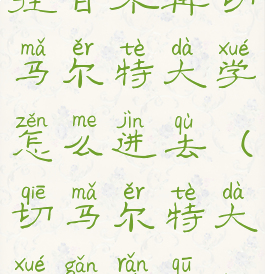 mǎ ěr tè dà xué
马尔特大学
zěn me jìn qù
怎么进去（
qiē mǎ ěr tè dà
切马尔特大
xué gǎn rǎn qū